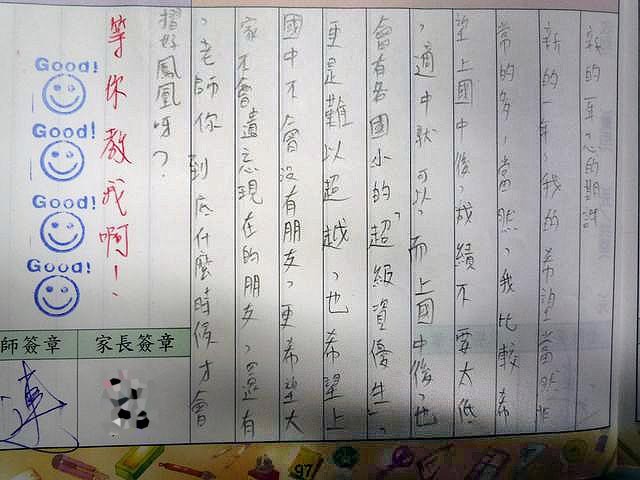 新的一年心的期許
新的一年，我的希望當然非
常的多，當然，我比較希
望上國中後，成績不要太低
，適中就可以，而上國中後，也
會有各國小的「超級資優生」，
更是難以超越，也希望上
國中不會沒有朋友，更希望大
家不會遺忘現在的朋友，還有
，老師你到底什麼時候才會
摺好鳳凰呀？
等你教我啊！
Good!
Good!
Good!
Good!
家長簽章
師簽章
97